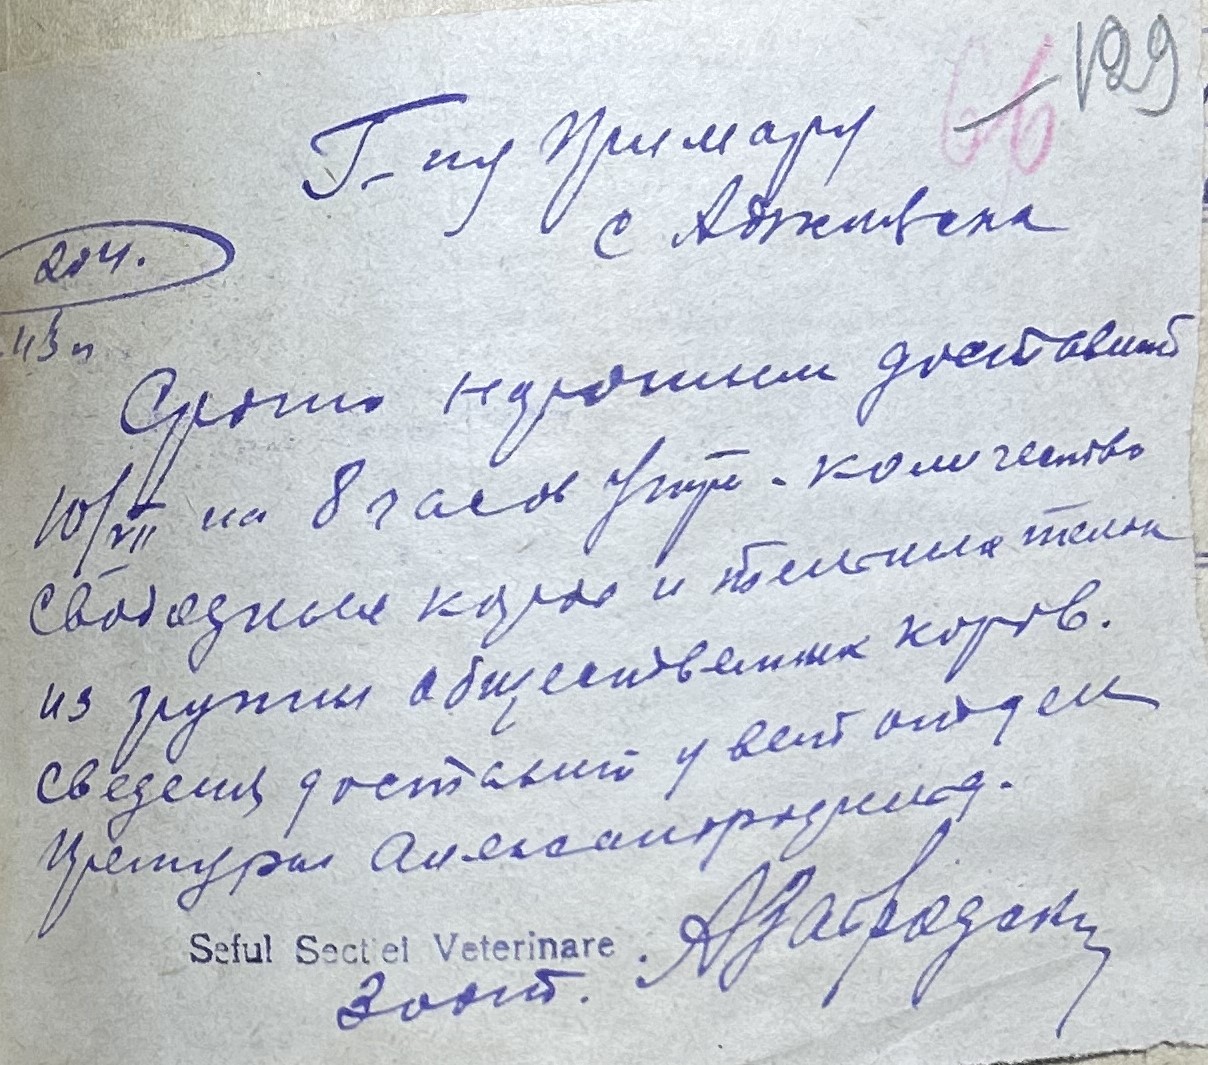 129
66
Г-ну Примару
с Аджиевка
204.
43 г
Срочно нарочным доставит
10/VII на 8 часов утра - количество
свободных коров и стельных телок
из группы общественных коров.
сведения доставит у вет отдел
Претуры Александродар.
Seful Sectiei Veterinare
Зоот.